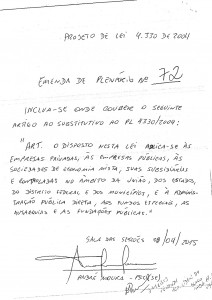 PROJETO DE LEI 4.330 DE 2004
EMENDA DE PLENÁRIO Nº 72
INCLUA-SE ONDE COUBER O SEGUINTE
ARTIGO AO SUBSTITUTIVO AO PL 4330/2004:
"ART. O DISPOSTO NESTA LEI APLICA-SE ÀS
EMPRESAS PRIVADAS, ÀS EMPRESAS PÚBLICAS, ÀS
SOCIEDADES DE ECONOMIA MISTA, SUAS SUBSIDIÁRIAS
E CONTROLADAS NO ÂMBITO DA UNIÃO, DOS ESTADOS,
DO DISTRITO FEDERAL E DOS MUNICÍPIOS, E À ADMINIS-
TRAÇÃO PÚBLICA DIRETA, AOS FUNDOS ESPECIAIS, ÀS
AUTARQUIAS E ÀS FUNDAÇÕES PÚBLICAS."
SALA DAS SESSÕES /04/2015
ANDRÉ MOURA - PSC/SE